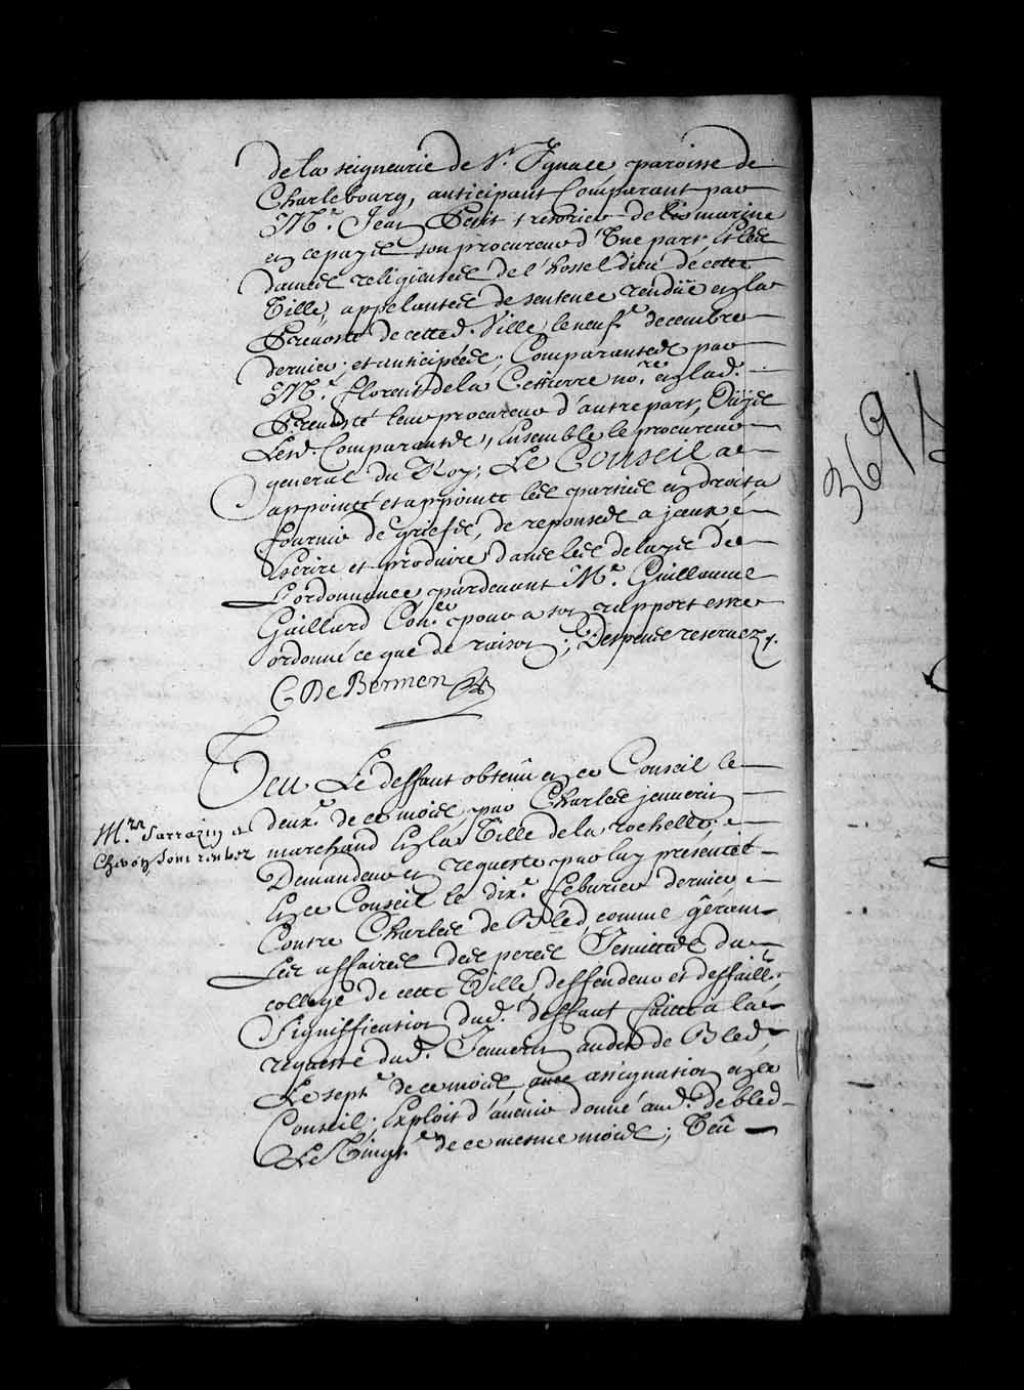 de la seigneurie de St. Ignace paroisse de
Charlebourg, anticipant Comparant par
Mr. Jean Petit tresorier de la marine
en ce pays son procureur d'Une part Et les
dames religieuses de l'hostel dieu de cette
Ville, appelantes de sentence rendüe en la
Prevosté de cetted. Ville le neufe decembre
dernier, et anticipées, Comparantes par
Mr. florent de la Cettierre nore. en lad.
Prevosté leur procureur d'autre part, Ouyes
Lesd. Comparantes, Ensemble le procureur
general du Roy, Le Conseil a
appointé et appointe les parties en droit a
fournir de griefs, de reponses a jceux,
Escrire et produire dans les delays de
L'ordonnance pardevant Mr. Guillaume
Gaillard Coner. pour a son rapport estre
ordonné ce que de raison; Despens reservez ./.
C De Bermen
Veu Le deffaut obtenu en ce Conseil le
deuxe. de ce mois, par Charles jouverin
Mrs. Sarrazin et
Chevon sont rentrez
marchand En la Ville de la rochelle,
Demandeur en requeste par luy presentée
En ce Conseil le dixe. feburier dernier
Contre Charles de Bled, comme gérant
Les affaires des peres Jesuittes du
college de cette Ville, deffendeur et deffaillt.
Signiffication dud. deffaut faitte a la
requeste dud. Jouverin audit de Bled,
Le septe. de ce mois, avec assignation en ce
Conseil; Exploit d'avenir donné aud. de bled
Le Vingte. de ce mesme mois; Veû
369